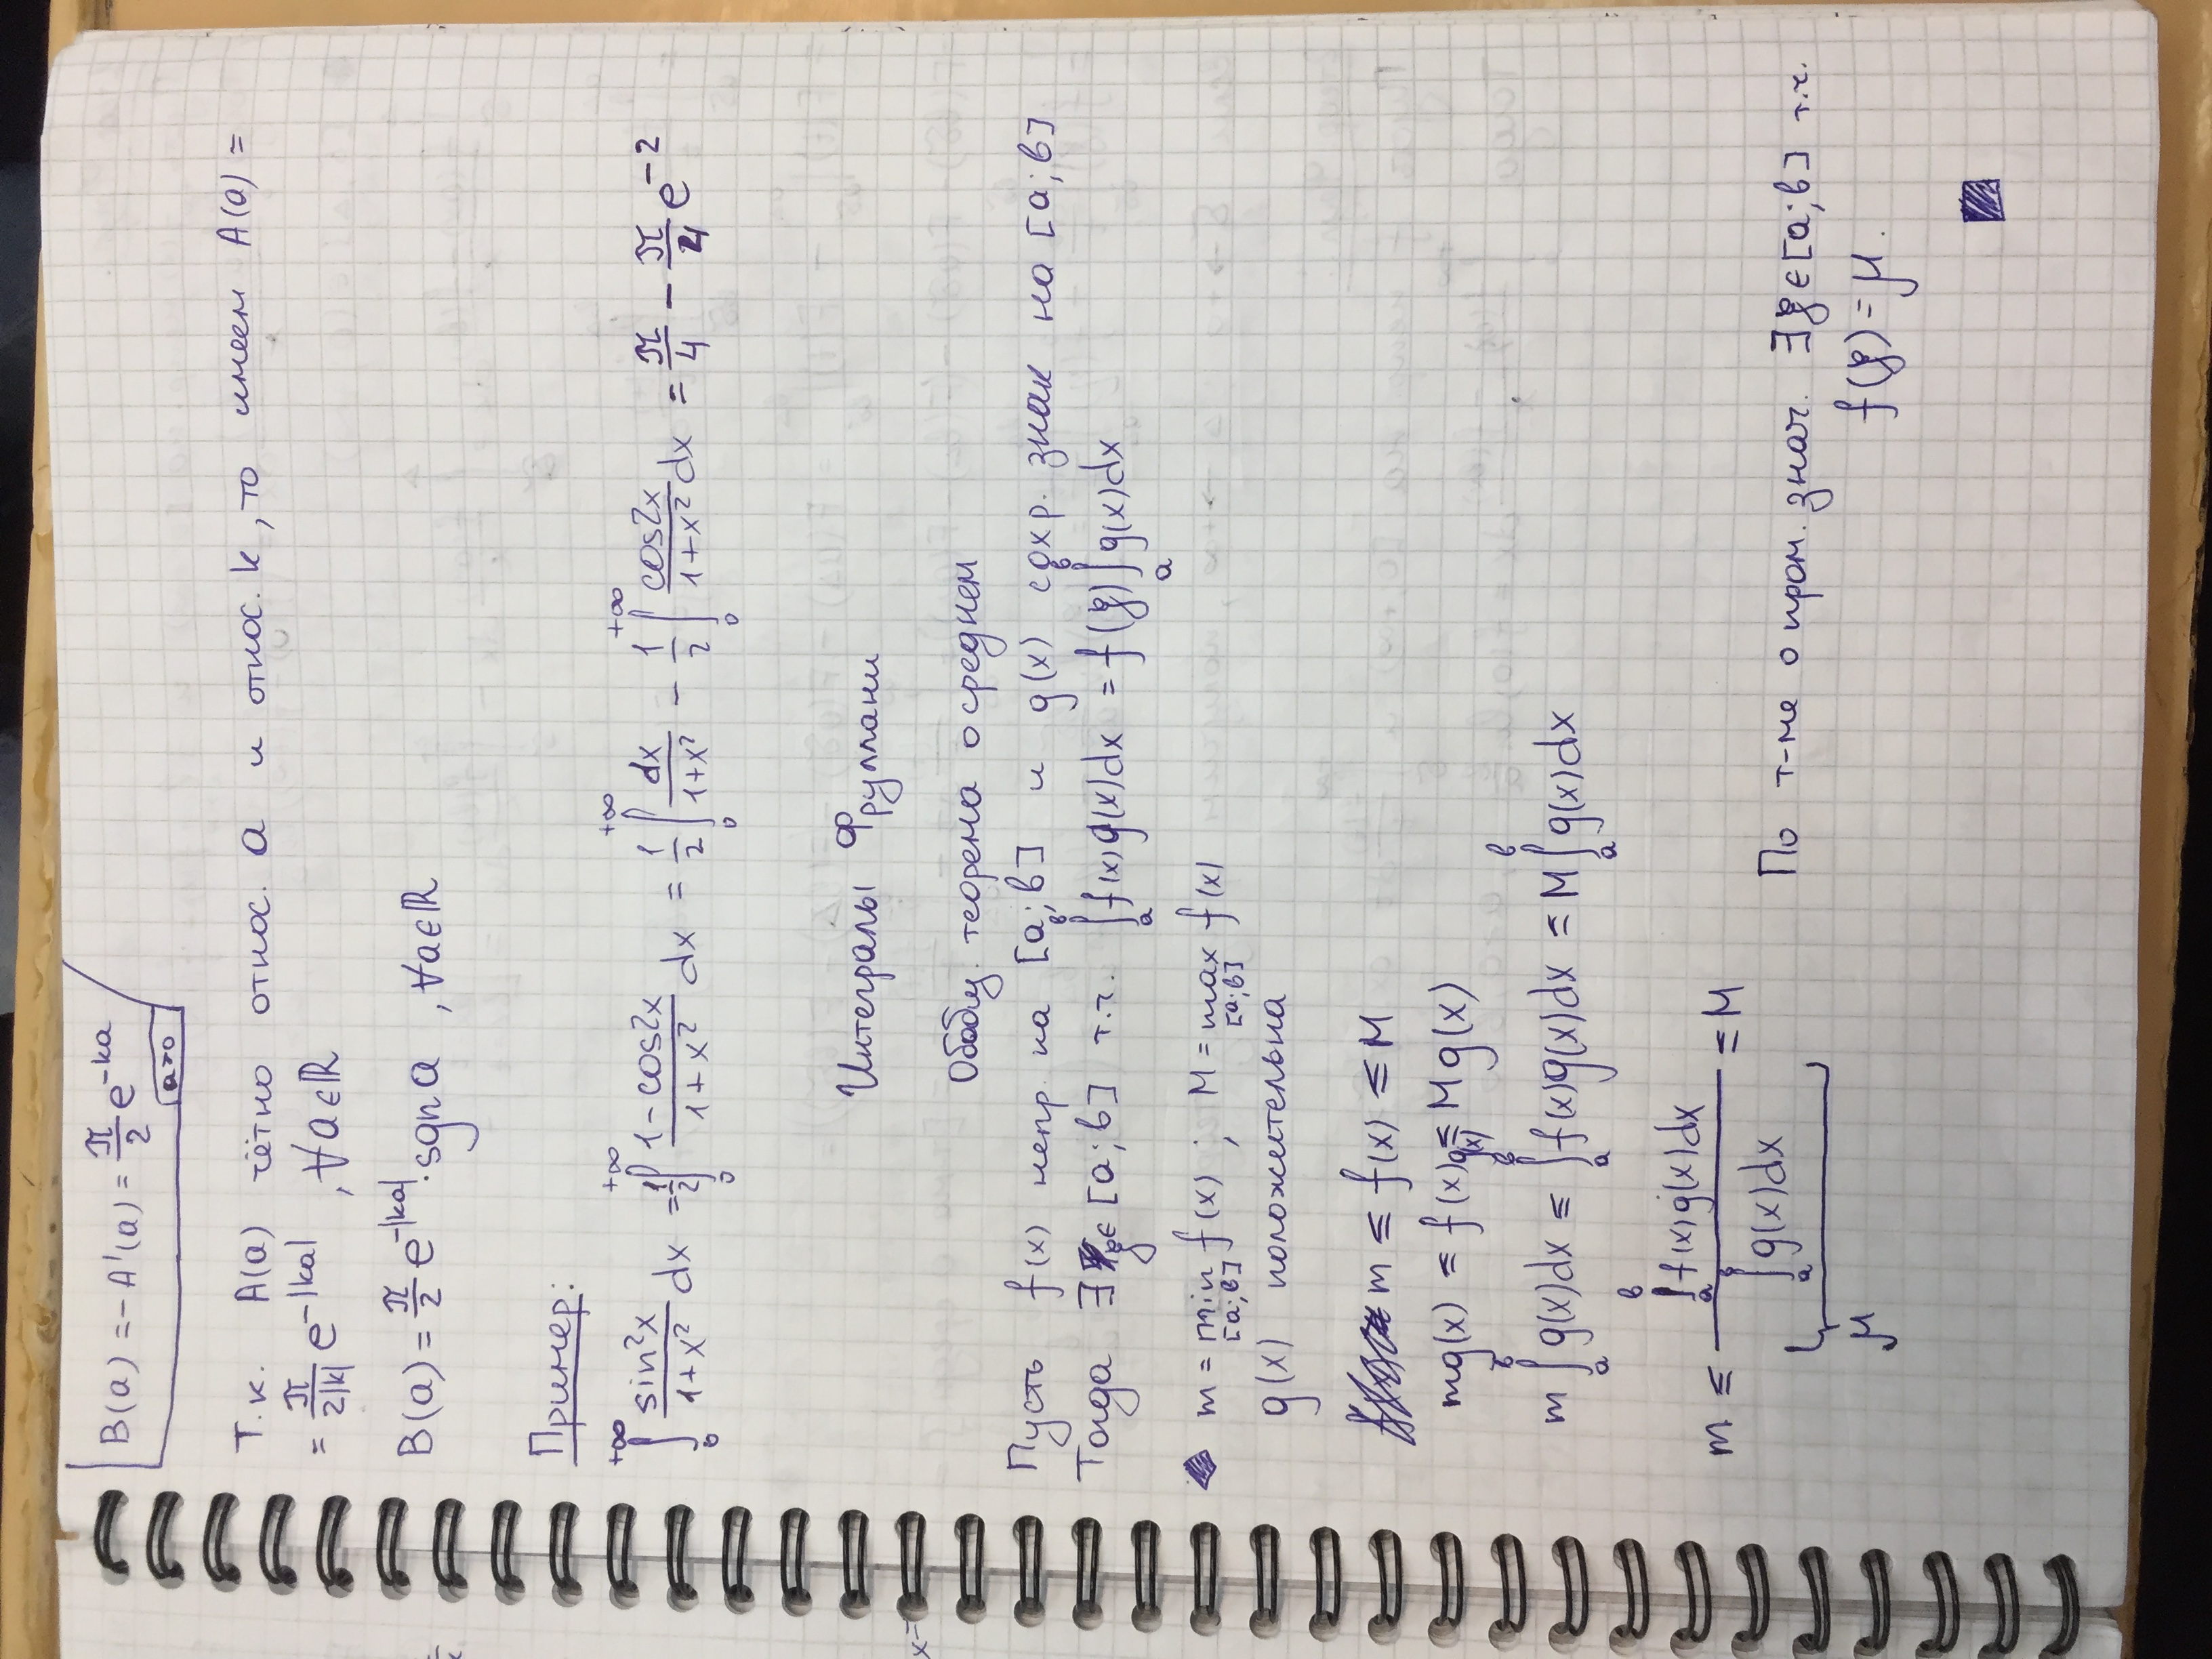 B(a) = -A'(a) = π/2 e^{-ka} a>0
Т.к. A(a) чётно относ. a и относ. k, то имеем A(a) =
= π/(2|k|) e^{-|ka|}, ∀a∈ℝ
B(a) = π/2 e^{-|ka|}·sgn a, ∀a∈ℝ
Пример:
∫_0^{+∞} sin²x/(1+x²) dx = 1/2 ∫_0^{+∞} (1-cos2x)/(1+x²) dx = 1/2 ∫_0^{+∞} dx/(1+x²) - 1/2 ∫_0^{+∞} cos2x/(1+x²) dx = π/4 - π/4 e^{-2}
Интегралы Фруллани
Обобщ. теорема о среднем
Пусть f(x) непр. на [a;b] и g(x) сохр. знак на [a;b]
Тогда ∃ξ∈[a;b] т.ч. ∫_a^b f(x)g(x)dx = f(ξ)∫_a^b g(x)dx
m = min_{[a;b]} f(x) ; M = max_{[a;b]} f(x)
g(x) положительна
m ≤ f(x) ≤ M
mg(x) ≤ f(x)g(x) ≤ Mg(x)
m∫_a^b g(x)dx ≤ ∫_a^b f(x)g(x)dx ≤ M∫_a^b g(x)dx
m ≤ ∫_a^b f(x)g(x)dx / ∫_a^b g(x)dx ≤ M
μ
По т-ме о пром. знач. ∃ξ∈[a;b] т.ч.
f(ξ) = μ.